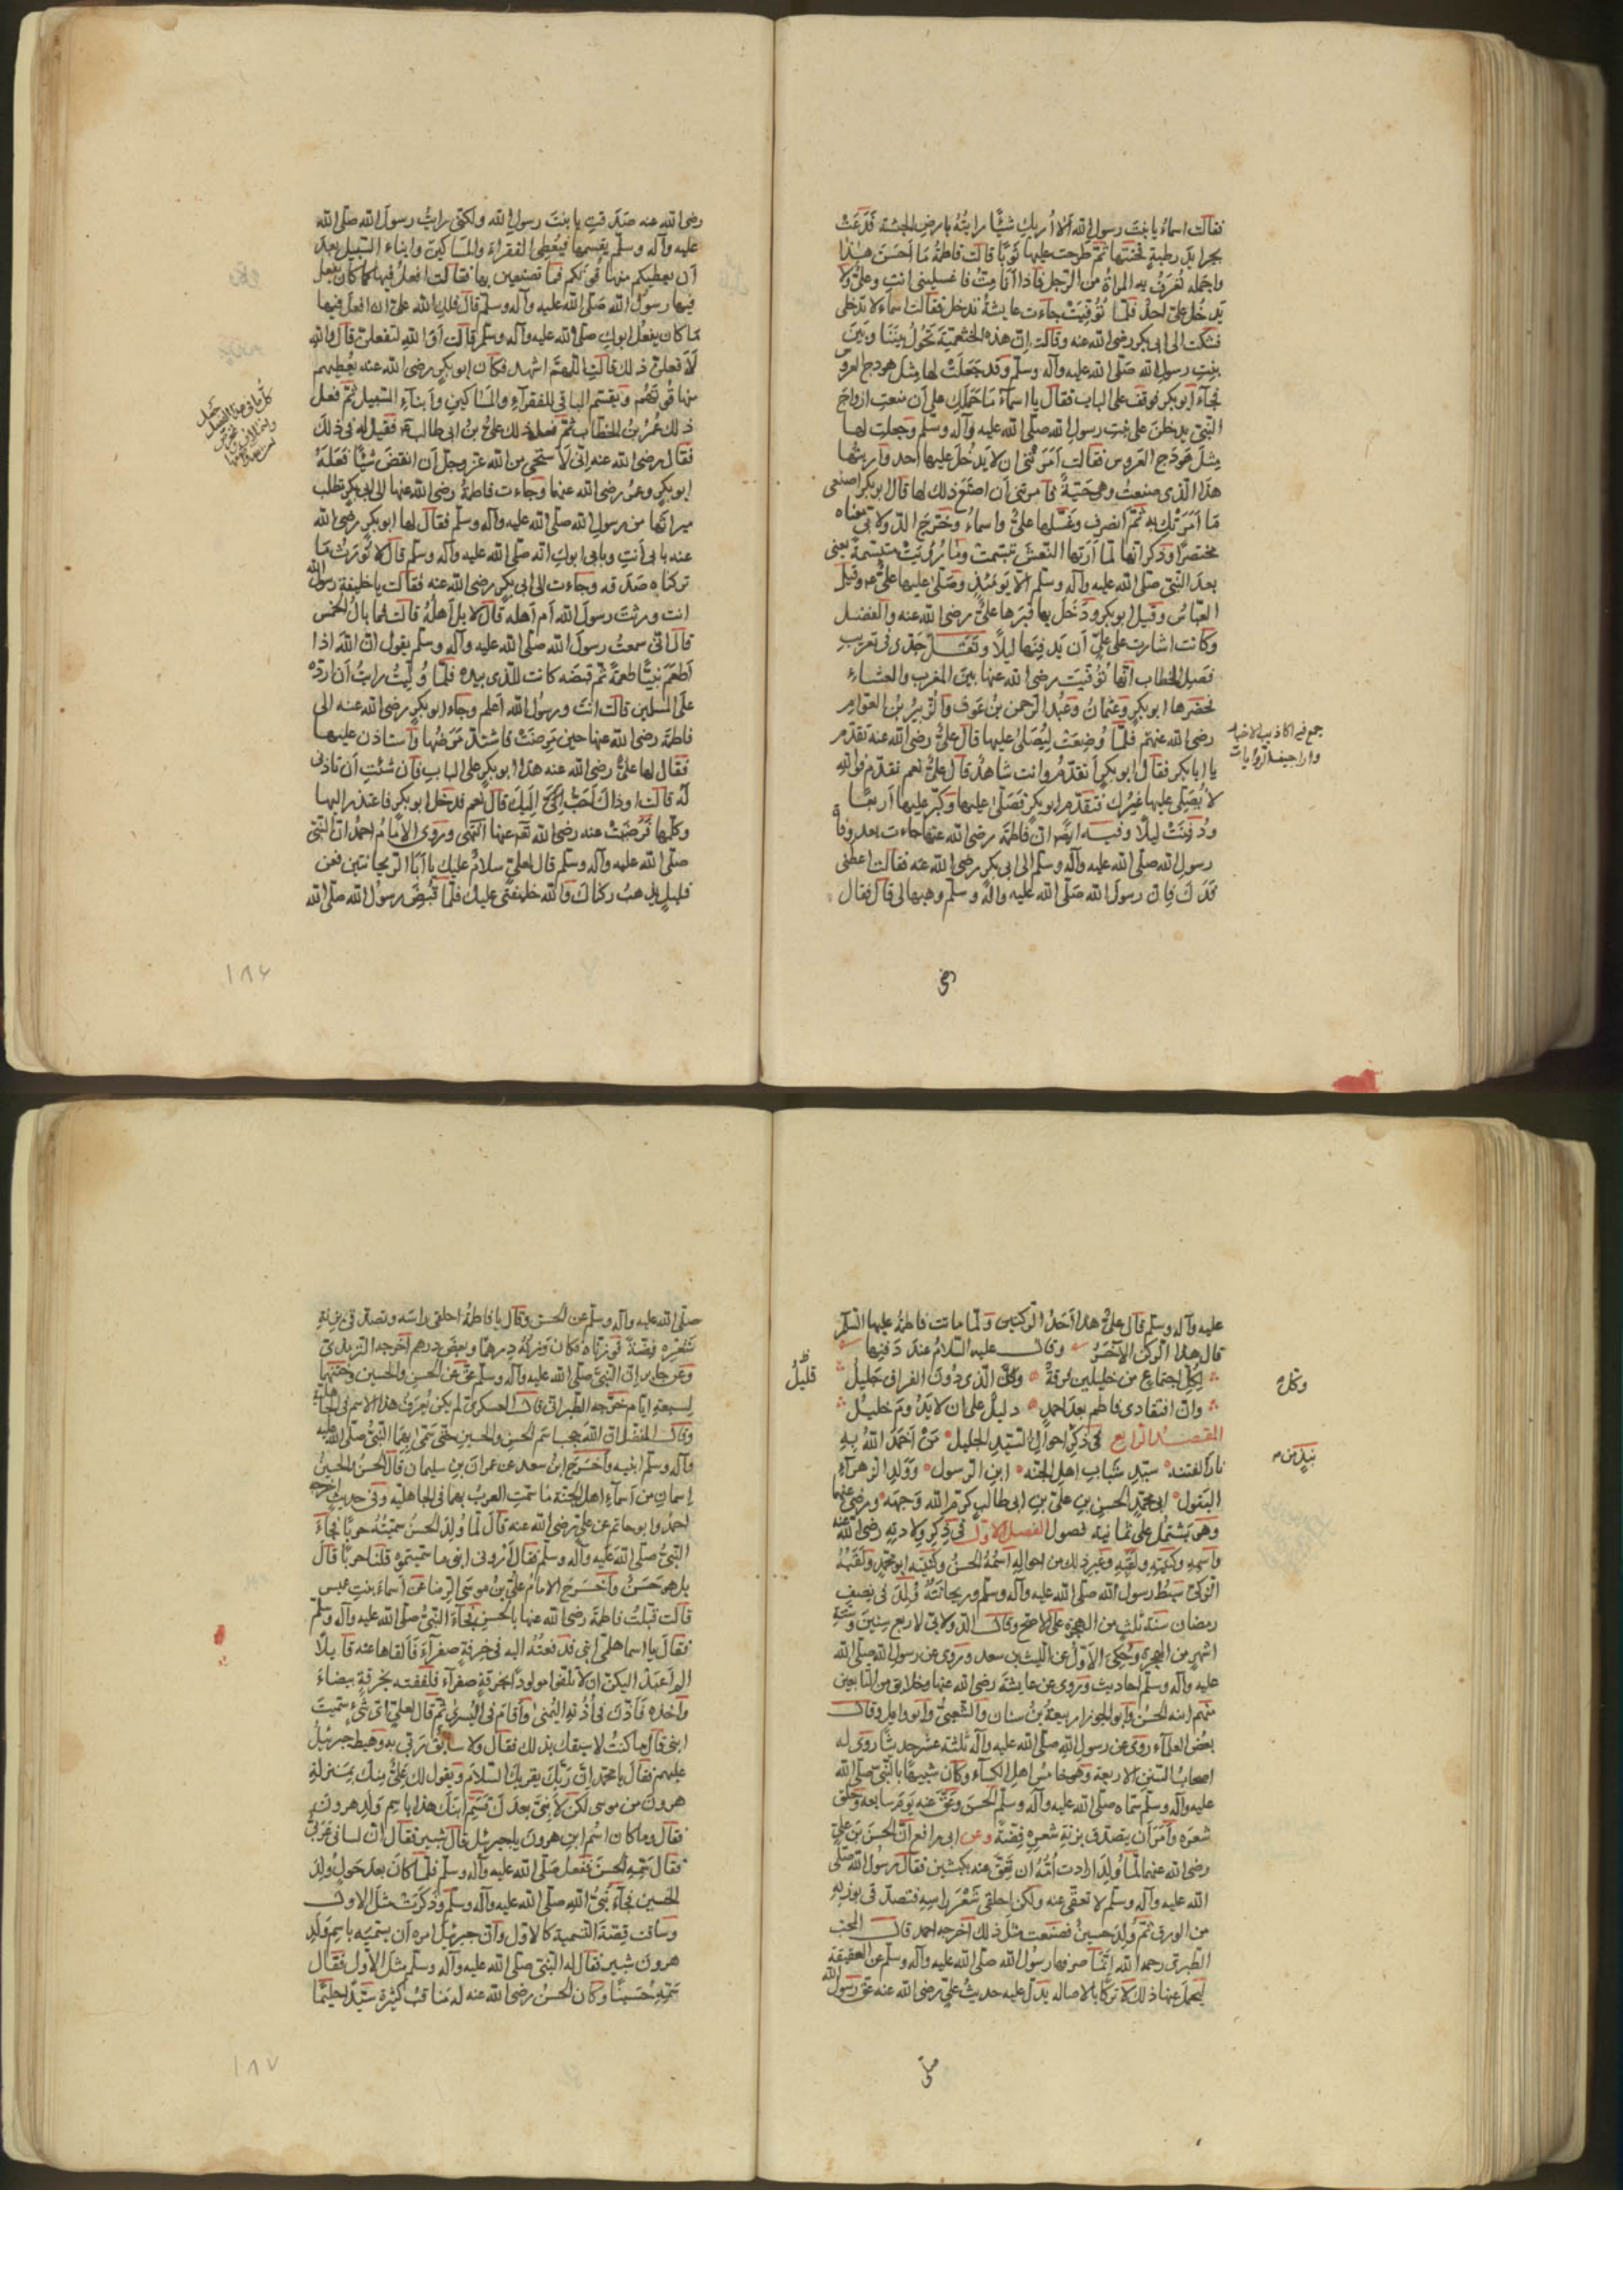 فقالت اسماءُ يا بنتَ رسولِ الله اَلا اُريكِ شيئًا رايتُهُ بارضِ الحبشة فَدَعَتْ
بجرايد رطبةٍ فحنتها ثمّ طرحت عليها ثوبًا قالت فاطمةُ مَا اَحسَنَ هٰذا
واجمله تُعرَفُ به المراةُ من الرّجل فاذا اَنا مِتُّ فاغسليني انتِ وعليٌّ ولا
يَدخُل عليّ احدٌ فلمّا تُوُفِّيَتْ جاءت عايشةُ تدخل فقالت اسماءُ لا تدخلي
فشكت الى ابي بكر رضى الله عنه وقالت اِنّ هذه الخثعميّة تَحُولُ بيننا وبين
بنتِ رسولِ الله صَلّى الله عليه وآله وسلّم وقد جَعَلَتْ لها مثل هودج العروس
فجآءَ ابو بكر فوقف على الباب فقال يا اسماءُ مَا حَمَلَكِ على ان منعتِ ازواجَ
النّبيّ يدخلنَ على بنتِ رسولِ الله صلّى الله عليه وآله وسلّم وجعلتِ لها
مِثلَ هَودَجِ العَروس فقالت اَمَرَتْني ان لا يَدخُلَ عليها احد واَريتُها
هٰذا الّذي صنعتُ وهي حَيّةٌ فامرتني اَن اصنَعَ ذلك لها قال ابو بكر اصنعي
مَا اَمَرَتْكِ به ثمّ انصرف وغسّلها عليٌّ واسماءُ وخرّج الدّولابيّ معناه
مختصرًا وذكر انّها لمّا اَرَتها النّعشَ تبسّمت وما رُئِيَتْ متبسّمةً يعني
بعدَ النّبيّ صلّى الله عليه وآله وسلّم الّا يومئذٍ وصَلّى عليها عليٌّ وقيل
العبّاسُ وقيل ابو بكر ودَخَل بها قبرَها عليٌّ رضى الله عنه والفضل
وكانت اشارت على عليّ اَن يَدفِنَها ليلًا ونَقَلَ جَدّي في تعريب
فصل الخطاب انّها تُوُفّيت رضى الله عنها بين المغرب والعشاء
فحضرها ابو بكر وعثمانُ وعَبدُ الرّحمن بنُ عَوف والزّبيرُ بنُ العوّام
رضى الله عنهم فلمّا وُضِعَت ليُصَلّى عليها قال عليٌّ رضى الله عنه تقدّم
يا ابا بكر فقال ابو بكر اَتقدّمُ وانت شاهدٌ قال عليٌّ نعم تقدّم فوالله
لا يُصَلّي عليها غيرُك فتقدّم ابو بكر فصَلّى عليها وكبّر عليها اَربعًا
ودُفِنَتْ ليلًا وفيه ايضًا انّ فاطمة رضى الله عنها جاءت بعد وفاة
رسولِ الله صلّى الله عليه وآله وسلّم الى ابي بكر رضى الله عنه فقالت اعطني
فَدَك فانّ رسولَ الله صَلّى الله عليه وآله وسلّم وهبها لي قال فقال
جمع فيه اكاذيب الاخبار
واراجيف الرّوايات
رضى
رضى الله عنه صَدَقتِ يا بنتَ رسولِ الله ولكنّي رايتُ رسولَ الله صلّى الله
عليه وآله وسلّم يقسمها فيُعطي الفقراءَ والمسَاكينَ وابناء السّبيل بعدَ
اَن يعطيكم منها قُوتَكم فما تصنعين بها فقالت افعلُ فيها كما كان يفعل
فيها رسولُ الله صَلّى الله عليه وآله وسلّم قال فلكِ الله عليّ ان افعلَ فيها
مَا كان يفعلُ ابوكِ صلّى الله عليه وآله وسلّم قالت اَوَالله لتفعلنّ قال والله
لَاَفعلنّ ذلك قالت اللّهمّ اشهد فكان ابو بكر رضى الله عنه يُعطيهم
منها قُوتَهُم ويقسّم الباقي للفقرآءِ والمسَاكين وابنآءِ السّبيل ثمّ فعل
ذلك عُمَرُ بنُ الخطّاب ثمّ فعل ذلك عليُّ بنُ ابي طالب فقيل له في ذلك
فقال رضى الله عنه انّي لَاَستحيي من الله عزّ وجلّ اَن انقضَ شيئًا فَعَلَهُ
ابو بكر وعمرُ رضى الله عنهما وجاءت فاطمةُ رضى الله عنها الى ابي بكر تطلب
ميراثها من رسولِ الله صلّى الله عليه وآله وسلّم فقال لها ابو بكر رضى الله
عنه بابي اَنتِ وبابي ابوكِ انّه صلّى الله عليه وآله وسلّم قال لا نُورَثُ مَا
تركناه صَدَقه وجاءت الى ابي بكر رضى الله عنه فقالت يا خليفةَ رسولِ الله
انت ورثتَ رسولَ الله اَم اَهلُه قال لا بل اَهلُهُ قالت فما بالُ الخمس
قال انّي سمعتُ رسولَ الله صلّى الله عليه وآله وسلّم يقول انّ الله اذا
اَطعَمَ نبيًّا طعمةً ثمّ قبضَه كانت للّذي بعده فلمّا وُلّيتُ رايتُ اَن اردّه
على المسلمين قالت انتَ ورسولُ الله اَعلم وجاء ابو بكر رضى الله عنه الى
فاطمة رضى الله عنها حين مَرِضَتْ فاشتدّ مَرَضُها واستاذن عليها
فقال لها عليٌّ رضى الله عنه هذا ابو بكر على الباب فان شئتِ اَن تاذني
لَهُ قالت اوذاك اَحَبُّ اِليكَ قال نعم فدخل ابو بكر فاعتذر اليها
وكلّمها فَرَضيَتْ عنه رضى الله عنهما انتهى وروى الاِمامُ احمدُ انّ النّبيّ
صلّى الله عليه وآله وسلّم قال لعليّ سلامٌ عليك يا اَبا الرّيحانتين فعن
قليلٍ يذهبُ ركناك والله خليفتي عليك فلمّا قُبِضَ رسولُ الله صلّى الله
١٨٦
عليه وآله وسلّم قال عليٌّ هذا اَحَدُ الرّكنين ولمّا ماتت فاطمةُ عليها السّلام
قال هذا الرّكن الآخَرُ وقال عليه السّلامُ عند دَفنِها
لِكُلِّ اجتماعٍ من خليلينِ فُرقةٌ وكلّ الّذي دُونَ الفراقِ جَليلُ
قليلُ
وكلّ
وانّ افتقادي فاطم بعدَ احمدٍ دليلٌ على ان لا يَدُومَ خليلُ
المقصد الرّابع في ذِكرِ احوالِ السّيّد الجليل مَنْ اَخمَدَ اللهُ بهِ
نارَ الفتنه سيّدِ شبابِ اهلِ الجنّه ابنِ الرّسول وَوَلَدِ الزّهرآءِ
البتول ابي محمّدٍ الحسنِ بنِ عليّ بنِ ابي طالب كرّم الله وَجهَه ورضى عنهما
وهو يشتملُ على ثمانية فصول الفصل الاوّل في ذِكرِ ولادته رضى الله عنه
واسمِه وكنيتِه ولَقَبِه وغيرِ ذلك من احواله اسمُهُ الحسنُ وكنيتُه ابو محمّدٍ ولقبُهُ
الزّكيّ سِبطُ رسولِ الله صلّى الله عليه وآله وسلّم وريحانتُهُ وُلِدَ في نصف
رمضان سنةَ ثلثٍ من الهجرة على الاصحّ وقال الدّولابيّ لاربع سنينَ وستّة
اشهرٍ من الهجرة وحُكيَ الاوّلُ عن اللّيث بن سعد وروى عن رسولِ الله صلّى الله
عليه وآله وسلّم احاديث وروى عن عايشة رضى الله عنها وخلايق من التّابعين
منهم ابنه الحسنُ وابو الجوزا ربيعةُ بنُ سنان والشّعبيُّ وابو وايل وقال
بعضُ العلمآء روى عن رسولِ الله صلّى الله عليه وآله ثلثةَ عشرَ حديثًا روى له
اصحابُ السّننِ الاربعة وهو خامسُ اهلِ الكسآء وكان شبيهًا بالنّبيّ صلّى الله
عليه وآله وسلّم سمّاه صلّى الله عليه وآله وسلّم الحسنَ وعَقَّ عنه يومَ سابعه وحَلَق
شعرَه وَاَمَرَ اَن يتصدّقَ بزنةِ شعره فِضّةً وعن ابي رافع اَنّ الحسنَ بنَ عليّ
رضى الله عنهما لمّا وُلِدَ ارادت اُمُّهُ ان تَعقَّ عنه بكبشين فقال رسولُ الله صلّى
الله عليه وآله وسلّم لا تعقّي عنه ولكن احلقي شَعْرَ راسِه فتصدّقي بوزنه
من الورق ثمّ وُلِدَ حسينٌ فصنعت مثلَ ذلك اخرجه احمد قال المحبّ
الطّبريّ رحمه الله اِنّما صرفها رسولُ الله صلّى الله عليه وآله وسلّم عن العقيقة
ليحملَ عنها ذلك لا تركًا بالاصالة يدلّ عليه حديثُ عليّ رضى الله عنه عقّ رسولُ الله
صلّى
صلّى الله عليه وآله وسلّم عن الحسن وقال يا فاطمةُ احلقي راسَه وتصدّقي بزنةِ
شعره فضّةً فوزنّاه فكان وزنُهُ درهمًا وبعضَ درهم اخرجه التّرمذيّ
وعن جابر انّ النّبيّ صلّى الله عليه وآله وسلّم عقّ عن الحسن والحسين وختنهما
لسبعةِ ايّام خرّجه الطّبرانيّ قال العسكريّ لم يكن يُعرَفُ هذا الاسم في الجاهلية
وقال المفضّل انّ الله حجب اسم الحسن والحسين حتّى سمّى بهما النّبيُّ صلّى الله عليه
وآله وسلّم ابنيه واَخرَجَ ابنُ سعد عن عمران بنِ سليمان قال الحسنُ والحسينُ
اِسمانِ من اَسمآءِ اهلِ الجنّة مَا سمّتِ العربُ بهما في الجاهليّة وفي حديث اخرجه
احمدُ وابو حاتم عن عليّ رضى الله عنه قال لمّا وُلِدَ الحسنُ سمّيتُهُ حربًا فجآءَ
النّبيّ صلّى الله عليه وآله وسلّم فقال اَرُوني ابني ما سمّيتموه قلنا حربًا قال
بل هو حَسَنٌ واَخرَجَ الامامُ عليُّ بنُ موسَى الرّضا عن اَسماءَ بنتِ عميس
قالت قبّلتُ فاطمةَ رضى الله عنها بالحسن فجآءَ النّبيُّ صلّى الله عليه وآله وسلّم
فقال يا اسما هلمّي ابني فدفعتُهُ اليه في خِرقةٍ صفرآءَ فالقاها عنه قايلًا
الم اَعهد اليكنّ ان لا تلفّوا مولودًا بخرقةٍ صفرآءَ فلففته بخرقةٍ بيضاءَ
واخذه فَاَذّنَ في اُذُنِهِ اليُمنى واَقامَ في اليُسرى ثمّ قال لعليّ ايّ شيءٍ سمّيتَ
ابني قال ما كنتُ لاسبقك بذلك فقال ولا سابقُ ربّي به وهبط جبرئيلُ
عليهم فقال يا محمّد انّ رَبّكَ يقرئك السّلامَ ويقول لك عليٌّ منك بمنزلةِ
هرونَ من موسى لكن لا نبيَّ بعدَك فسَمِّ ابنَك هذا باسم وَلَدِ هرونَ
فقال وما كان اسمُ ابنِ هرونَ يا جبرئيل قال شبير فقال انّ لساني عَرَبيّ
فقال سَمِّه الحسنَ ففعل صلّى الله عليه وآله وسلّم فلمّا كانَ بعدَ حَولٍ وُلِدَ
الحسين فجآءَ نبيُّ الله صلّى الله عليه وآله وسلّم وذَكَرَتْ مثلَ الاوّل
وساقت قصّةَ التّسمية كالاوّل واَنّ جبرئيلَ امره اَن يسمّيَه باسمِ وَلَدِ
هرون شبير فقال له النّبيّ صلّى الله عليه وآله وسلّم مثلَ الاوّل فقال
سَمِّهِ حُسَينًا وكان الحسنُ رضى الله عنه له مَناقبُ كثيرة سيّدًا حليمًا
١٨٧